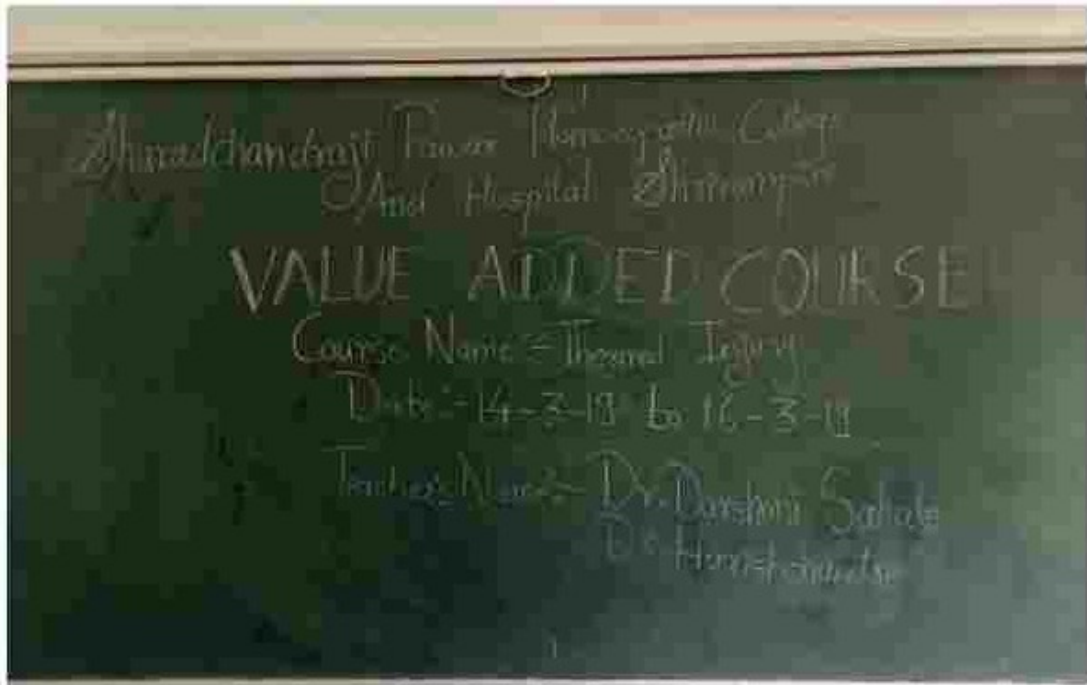 Sharadchandraji Pawar Homoeopathic College
And Hospital Shrirampur
VALUE ADDED COURSE
Course Name:- Thermal Injury
Date:- 14-3-19 to 16-3-19
Teachers Name:- Dr. Darshana
Dr. Harishchandra